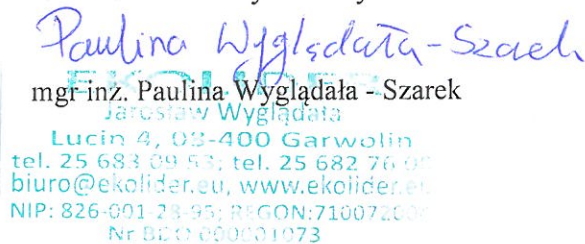 Paulina Wyglądała-Szarek
EKOLIDER
mgr inż. Paulina Wyglądała - Szarek
Jarosław Wyglądała
Lucin 4, 08-400 Garwolin
tel. 25 683 09 53; tel. 25 682 76
biuro@ekolider.eu, www.ekolider.eu
NIP: 826-001-28-95; REGON:710072
Nr BDO 000001073